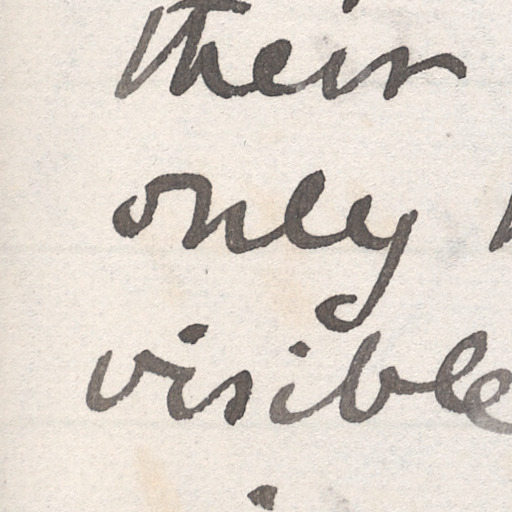 their
only
visible